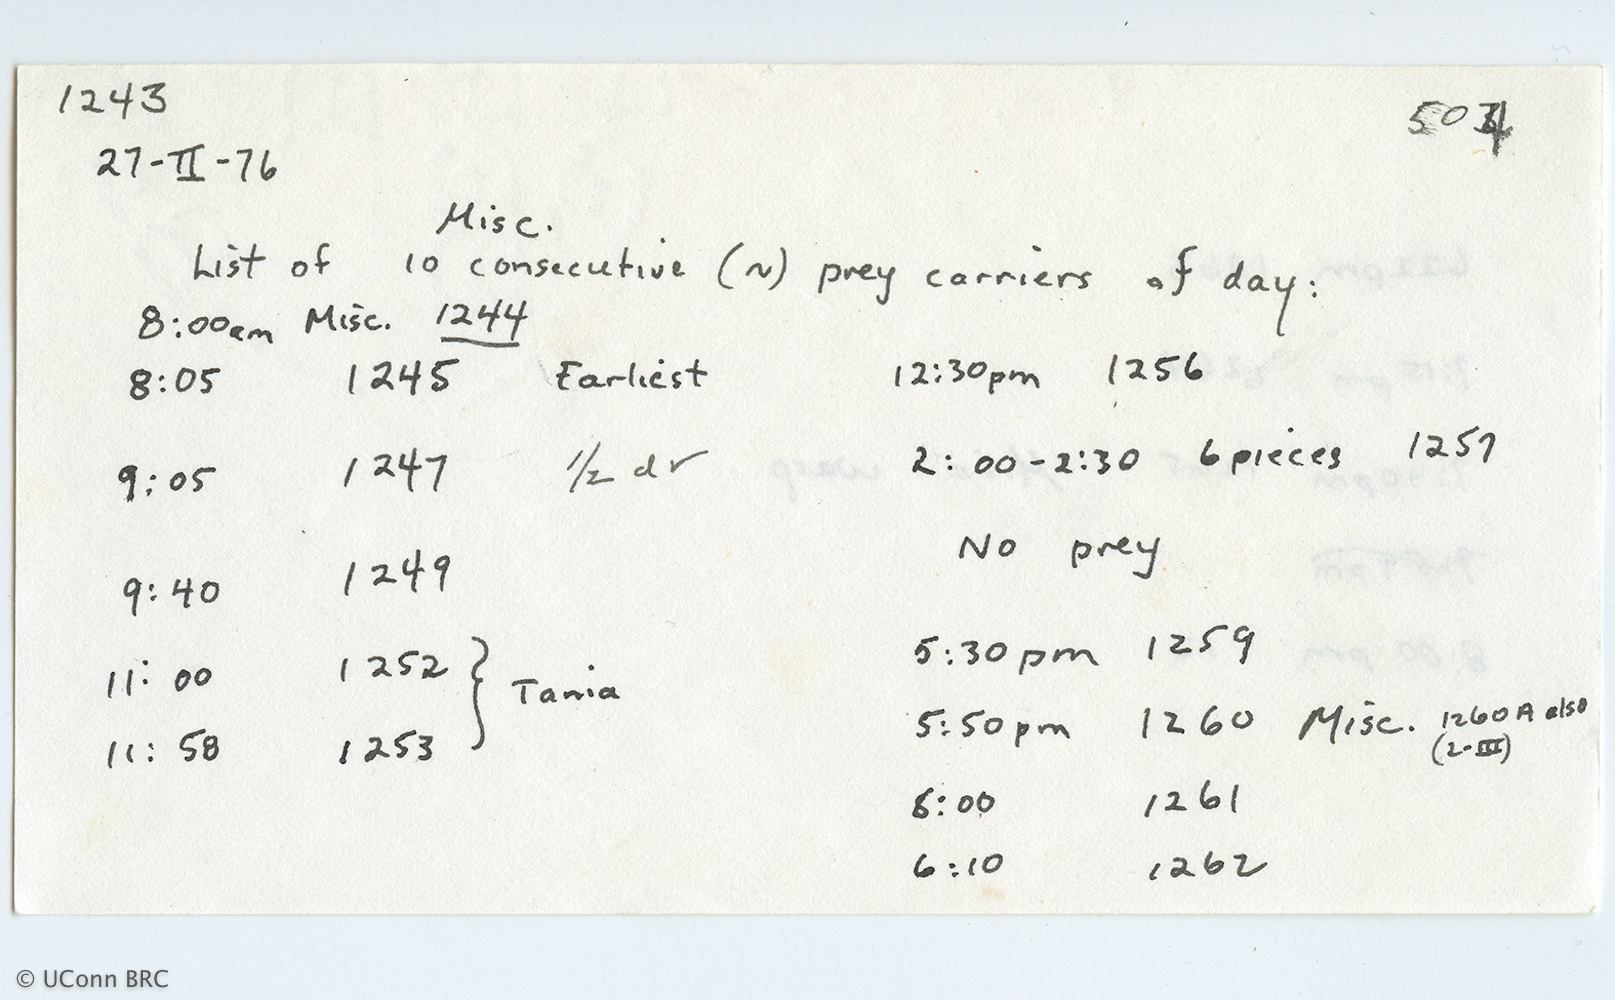 1243
504
27-II-76
Misc.
List of 10 consecutive (~) prey carriers of day:
8:00am Misc. 1244
8:05 1245 Earliest
9:05 1247 1/2 dr
9:40 1249
11:00 1252 } Tania
11:58 1253
12:30pm 1256
2:00-2:30 6 pieces 1257
No prey
5:30pm 1259
5:50pm 1260 Misc. 1260A also
(2-III)
6:00 1261
6:10 1262
© UConn BRC